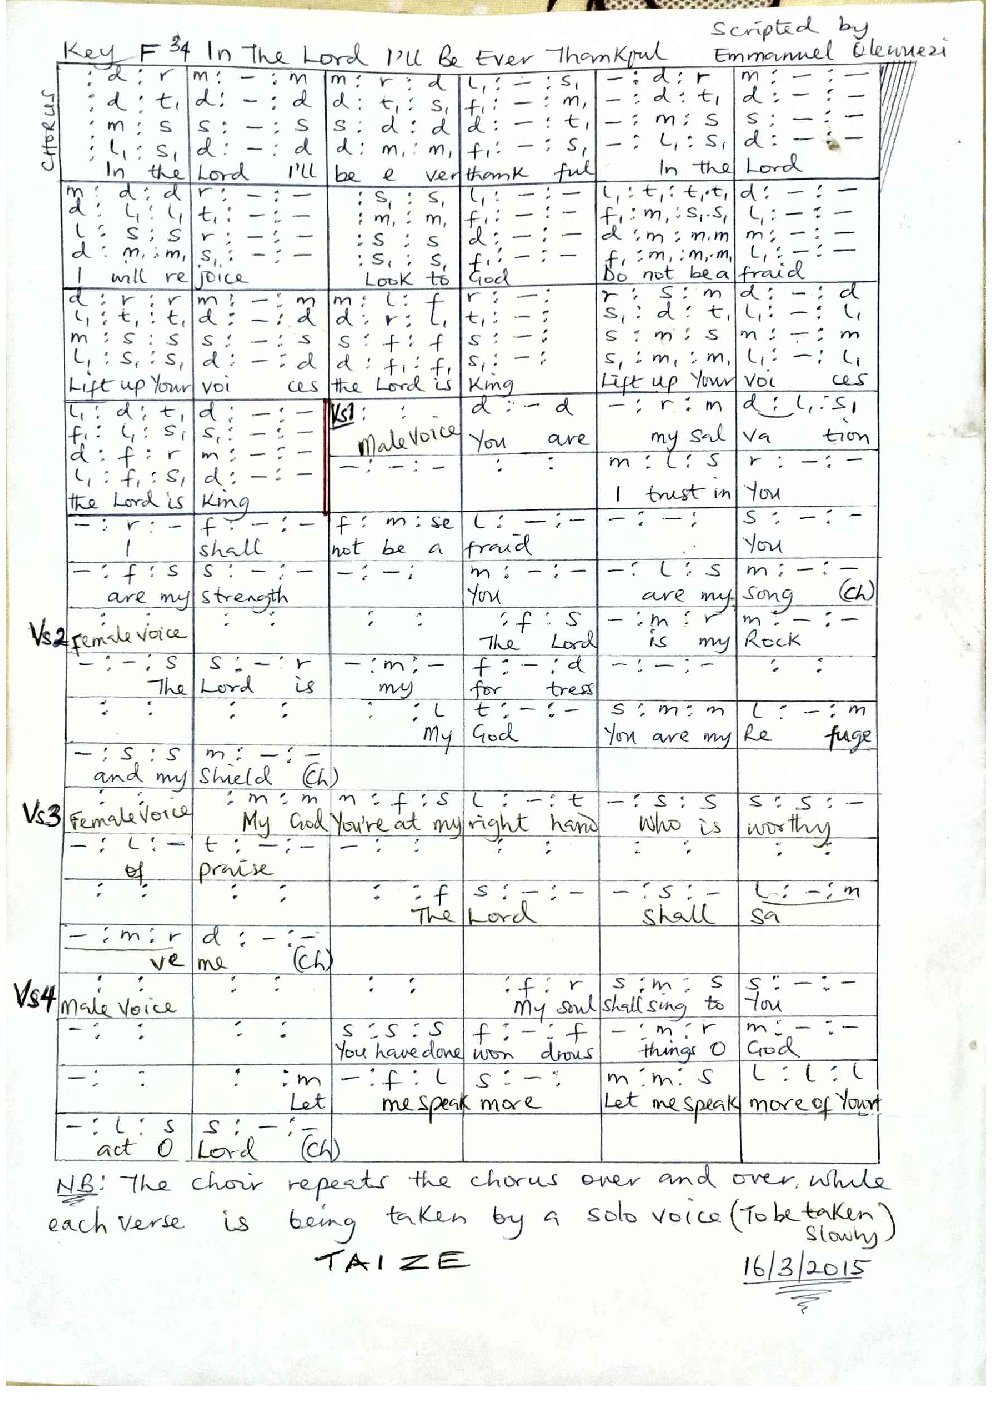 Scripted by
Key F 3/4 In The Lord I'll Be Ever Thankful Emmanuel
CHORUS
: d : r | m : - : m | m : r : d | l₁ : - : s₁ | - : d : r | m : - : -
: d : t₁ | d : - : d | d : t₁ : s₁ | f₁ : - : m₁ | - : d : t₁ | d : - : -
: m : s | s : - : s | s : d : d | d : - : t₁ | - : m : s | s : - : -
: l₁ : s₁ | d : - : d | d : m₁ : m₁ | f₁ : - : s₁ | - : l₁ : s₁ | d : - : -
In the | Lord I'll | be e ver | thank ful | In the | Lord
m : d : d | r : - : - | : s₁ : s₁ | l₁ : - : - | l₁ : t₁ : t₁.t₁ | d : - : -
d : l₁ : l₁ | t₁ : - : - | : m₁ : m₁ | f₁ : - : - | f₁ : m₁ : s₁.s₁ | l₁ : - : -
l : s : s | r : - : - | : s : s | d : - : - | d : m : m.m | m : - : -
d : m₁ : m₁ | s₁ : - : - | : s₁ : s₁ | f₁ : - : - | f₁ : m₁ : m₁.m₁ | l₁ : - : -
I will re | joice | Look to | God | Do not be a | fraid
d : r : r | m : - : m | m : l : f | r : - : | r : s : m | d : - : d
l₁ : t₁ : t₁ | d : - : d | d : r : l₁ | t₁ : - : | s₁ : d : t₁ | l₁ : - : l₁
m : s : s | s : - : s | s : f : f | s : - : | s : m : s | m : - : m
l₁ : s₁ : s₁ | d : - : d | d : f₁ : f₁ | s₁ : - : | s₁ : m₁ : m₁ | l₁ : - : l₁
Lift up Your | voi ces | the Lord is | King | Lift up Your | voi ces
l₁ : d : t₁ | d : - : - | Vs1 : : | d : - d | - : r : m | d : l₁ : s₁
f₁ : l₁ : s₁ | s₁ : - : - | Male Voice | You are | my sal | va tion
d : f : r | m : - : - | - : - : - | : : | m : l : s | r : - : -
l₁ : f₁ : s₁ | d : - : - | I trust in | You
the Lord is | King
- : r : - | f : - : - | f : m : se | l : - : - | - : - : | s : - : -
I | shall | not be a | fraid | You
- : f : s | s : - : - | - : - : | m : - : - | - : l : s | m : - : -
are my | strength | You | are my | song (Ch)
Vs2 Female Voice : : | : : | : : | : f : s | - : m : r | m : - : -
The Lord | is my | Rock
- : - : s | s : - : r | - : m : - | f : - : d | - : - : - | : :
The | Lord is | my | for tress
: : | : : | : : l | t : - : - | s : m : m | l : - : m
My | God | You are my | Re fuge
- : s : s | m : - : -
and my | Shield (Ch)
Vs3 Female Voice : : | : m : m | m : f : s | l : - : t | - : s : s | s : s : -
My God | You're at my | right hand | Who is | worthy
- : l : - | t : - : - | - : : | : : | : : | : :
of | praise
: : | : : | : : f | s : - : - | - : s : - | l : - : m
The | Lord | shall | sa
- : m : r | d : - : -
ve | me (Ch)
Vs4 Male Voice : : | : : | : : | : f : r | s : m : s | s : - : -
My soul | shall sing to | You
- : : | : : | s : s : s | f : - : f | - : m : r | m : - : -
You have done | won drous | things O | God
- : : | : : m | - : f : l | s : - : | m : m : s | l : l : l
Let | me speak | more | Let me speak | more of Your
- : l : s | s : - : -
act O | Lord (Ch)
NB: The choir repeats the chorus over and over, while
each verse is being taken by a solo voice (To be taken
Slowly)
TAIZE
16/3/2015